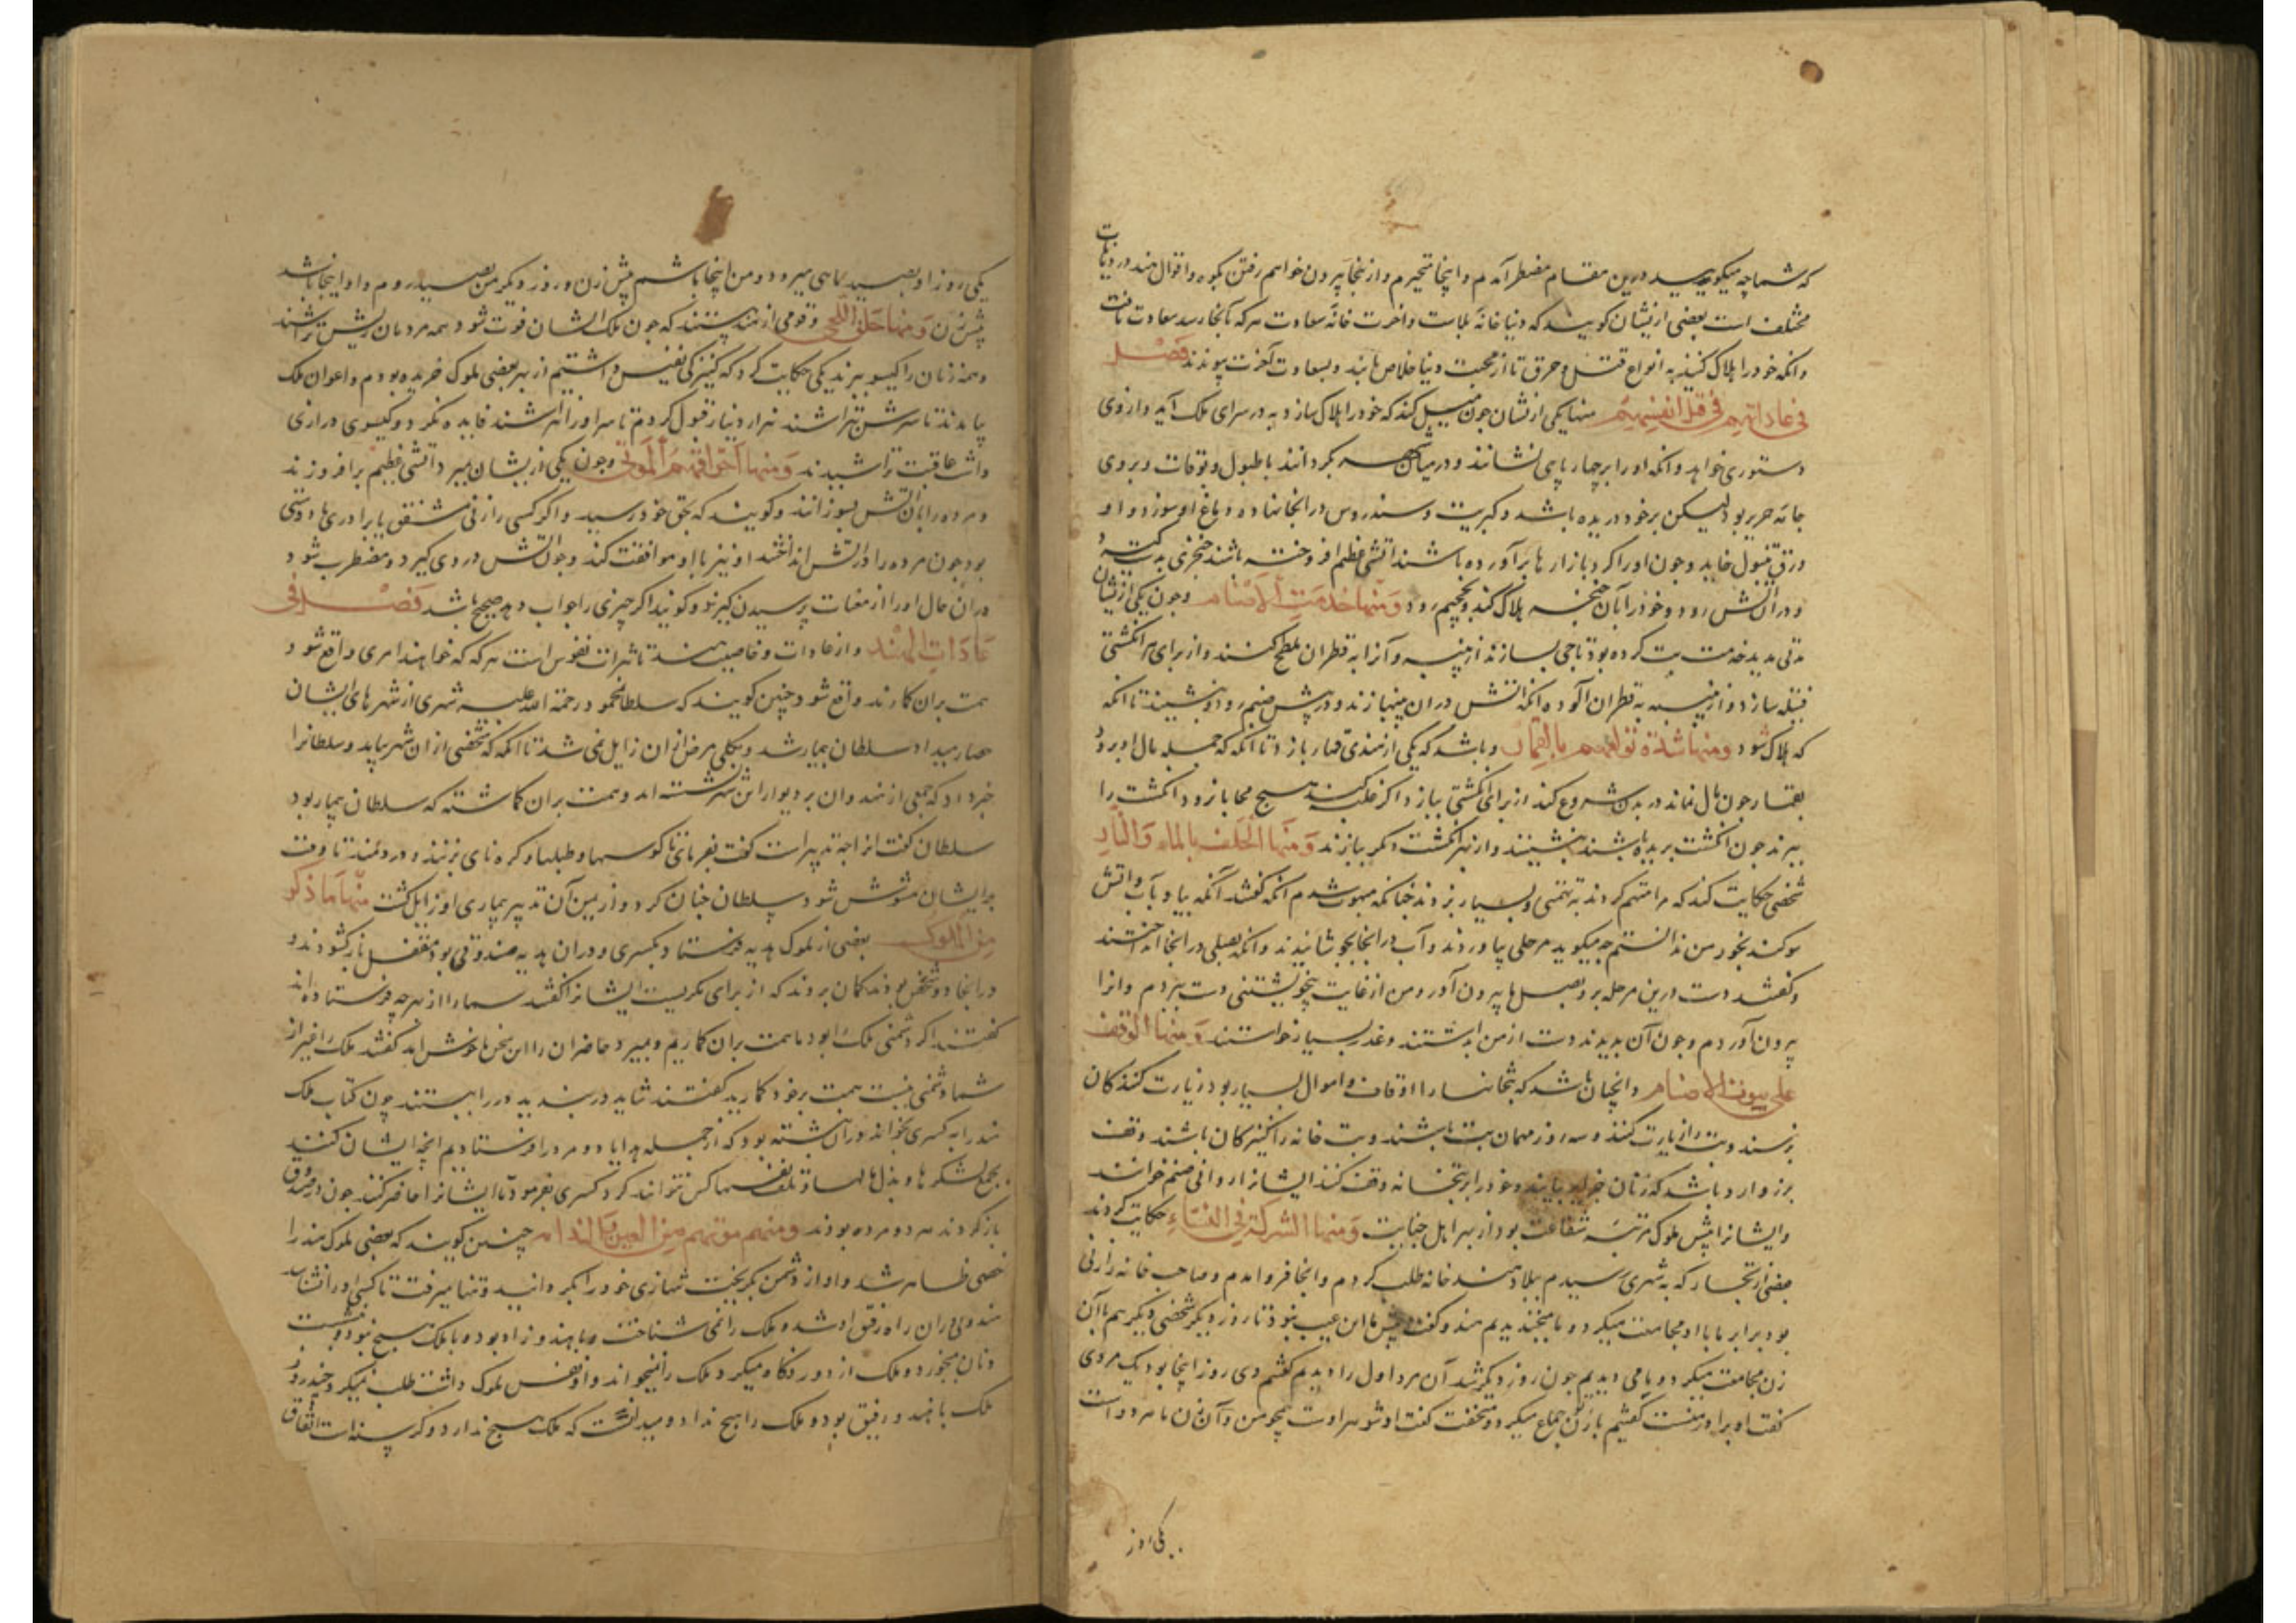 که شما چه میگویید درین مقام مضطر آمدم و اینجا متحیرم و از اینجا بیرون خواهم رفتن بکوه و اقوال هند در دیانات
مختلف است بعضی ازیشان کویند که دنیا خانه بلاست و اخرت خانه سعادت هرکه آنجا رسد سعادت یافت
وانکه خود را هلاک کنند به انواع قتل و حرق تا از محبت دنیا خلاص یابند و بسعادت آخرت پیوندند فصل
فی عاداتهم فی قتل انفسهم منها یکی ازیشان جون میل کند که خود را هلاک سازد به در سرای ملک آید و از وی
دستوری خواهد وانکه او را بر چهارپایی نشانند و در میان شهر بکردانند با طبول و بوقات و بر وی
جامه حریر بود لیکن بر خود دریده باشد و کبریت و سندروس در انجا نهاده و دماغ او سوزد و او
ورق تنبول خاید و جون او را کرد بازارها برآورده باشند اتشی عظیم افروخته باشند خنجری بدست گیرد
و در اتش رود و خود را بآن خنجر هلاک کند و بجحیم رود ومنها خدمت الاصنام و جون یکی ازیشان
مدتی مدید خدمت بت کرده بود تاجی بسازند از پنبه و آنرا به قطران ملطخ کنند و از برای هر انکشتی
فتیله سازد و از پنبه به قطران آلوده انکه اتش در ان پنبها زند و در پیش صنم رود و بنشیند تا انکه
که هلاک شود ومنها شدة تولعهم بالقمار و باشد که یکی از هندی قمار بازد تا انکه که جمله مال او برود
بقمار جون مال نماند در بدن شروع کند از برای انکشتی ببازد اکر غلبه کنند هیچ محابا نرود انکشت را
ببرند جون انکشت بریده باشند بنشینند و از بهر انکشت دکر بازند ومنها الحلف بالماء والنار
شخصی حکایت کند که مرا متهم کردند به تهمتی و بسیار بزدند جنانکه مبهوت شدم انکه کفتند آنکه بیا و بآب و اتش
سوکند بخور من ندانستم چه میکوید مرجلی بیاوردند و آب در انجا بجوشانیدند وانکه نعلی در انجا انداختند
و کفتند دست درین مرجل بر و نعل ها بیرون آور و من از غایت بیخویشتنی دست ببردم و انرا
بیرون آوردم و جون آن بدیدند دست از من بداشتند و عذر بسیار خواستند ومنها الوقف
علی بیوت الاصنام و انجنان باشد که بتخانها را اوقاف و اموال بسیار بود زیارت کنندکان
برسند و بت را زیارت کنند و سه روز مهمان بت باشند و بت خانه را کنیزکان باشند وقف
برو وارد باشد که زنان خود را بر بتخانه وقف کنند ایشانرا روانی صنم خوانند
و ایشانرا پیش ملوک مرتبه شفاعت بود از بهر اهل جنایت ومنها الشرکة فی النساء حکایت کردند
بعضی از تجار که به شهری رسیدم ببلاد هند خانه طلب کردم و انجا فرو امدم و صاحب خانه را زنی
بود برابر ما با او مجامعت میکرد و ما میخندیدیم هندو کفت پیش ما این عیب نبود تا روز دیکر شخصی دیکر هم با آن
زن مجامعت میکرد و ما می دیدیم جون روز دیکر شد آن مرد اول را دیدیم کفتم دی روز اینجا بود یک مردی
کفت او برادر منست کفتیم با زن تو جماع میکرد و میخفت کفت او شوهر اوست همچو من و آن زن ما هر دو است
یکی روز
یکی روز او بصید ماهی میرود و من اینجا باشم پیش زن و روز دیکر من بصید روم و او اینجا باشد
پیش زن ومنها حلق اللحی و قومی از هند هستند که جون ملک ایشان فوت شود همه مردمان ریش تراشند
و همه زنان را کیسو ببرند یکی حکایت کرد که کنیزکی نفیس داشتیم از بهر بعضی ملوک خریده بودم و اعوان ملک
بیامدند تا سرش بتراشند هزار دینار قبول کردم تا سر او را نتراشند فایده نکرد و کیسوی درازی
داشت عاقبت تراشیدند ومنها احراقهم الموتی و جون یکی ازیشان بمیرد اتشی عظیم برافروزند
و مرده را بآن اتش بسوزانند و کویند که بحق خود رسید و اکر کسی را زنی مشفق یا برادری یا دوستی
بود جون مرده را در اتش انداختند او نیز با او موافقت کند و جون اتش در وی کیرد و مضطرب شود
در ان حال او را از مغیبات پرسیدن کیرند و کویند اکر چیزی را جواب دهد صحیح باشد فصل فی
عادات الهند و از عادات و خاصیت هند تاثیرات نفوس است هرکه که خواهند امری واقع شود
همت بران کمارند واقع شود چنین کویند که سلطان محمود رحمة الله علیه شهری از شهرهای ایشان
حصار میداد سلطان بیمار شد و بکلی مرض از ان زایل نمی شد تا انکه که شخصی از ان شهر بیامد و سلطانرا
خبر داد که جمعی از هندوان بر دیوار این شهر نشسته اند و همت بران کماشته که سلطان بیمار بود
سلطان کفت انرا جه تدبیرست کفت بفرمای تا کوسها و طبلها و کره نای بزنند و در دمند تا وقت
بر ایشان مشوش شود سلطان جنان کرد و از یمن آن تدبیر بیماری او زایل کشت منها ما ذکر
من الملوک بعضی از ملوک هدیه فرستاد بکسری و در ان هدیه صندوقی بود مقفل باز کشودند و
در انجا دو شخص بودند کمان بردند که از برای مکریست ایشانرا کفتند شما را از بهر چه فرستاده اند
کفتند اکر دشمنی ملک را بود ما همت بران کماریم و بمیرد حاضران را این سخن ها خوش آمد کفتند ملک را غیر از
شما دشمنی نیست همت بر خود کمارید کفتند شاید در بندید در را ببستند چون کتاب ملک
هند را به کسری بخواندند در ان نبشته بود که از جمله هدایا دو مرد را فرستادیم انچه ایشان کنند
بجمع لشکرها و بذل مالها و تلف نفسها کس نتواند کرد کسری بفرمود تا ایشانرا حاضر کنند جون در صندوق
باز کردند هر دو مرده بودند چنین کویند که بعضی ملوک هند را
خصمی ظاهر شد و او از دشمن بکریخت بتنهایی خود را بکردانید و تنها میرفت تا کسی او را نشناسد
هندوی در ان راه رفیق او شد و ملک را نمی شناخت و با هندو زاد بود و با ملک هیچ نبود و بنشست
و نان میخورد و ملک از دور نکاه میکرد و ملک را نمیخواند و او نفس ملوک داشت طلب نمیکرد چند روز
ملک با هندو رفیق بود و ملک را هیچ نداد و میدانست که ملک هیچ ندارد و کرسنه است اتفاق